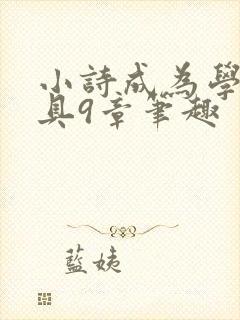 小詩成為學
具9章筆趣
藍姨